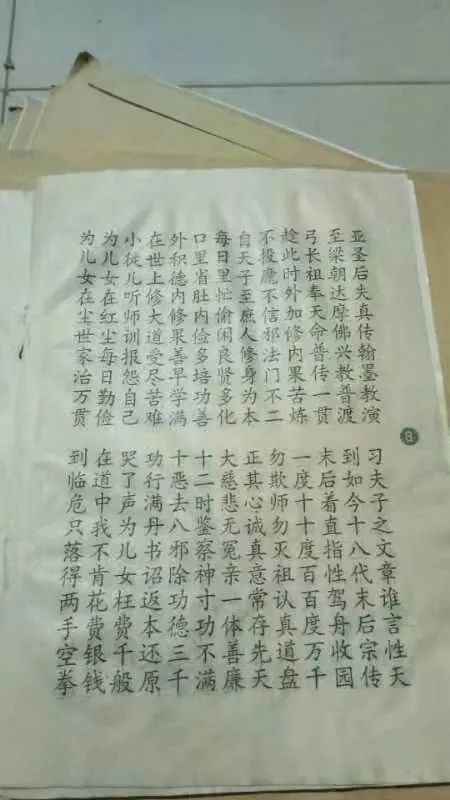 亚圣后失真传翰墨教演
习夫子之文章谁言性天
至梁朝达摩佛兴教普渡
到如今十八代末后宗传
弓长祖奉天命普传一贯
末后着直指性驾舟收园
趁此时外加修内果苦炼
一度十十度百百度万千
不投魔不信邪法门不二
勿欺师勿灭祖认真道盘
自天子至庶人修身为本
正其心诚真意常存先天
每日里忙偷闲良贤多化
大慈悲无冤亲一体善廉
口里省肚内俭多培功善
十二时鉴察神寸功不满
外积德内修果善早学满
十恶去八邪除功德三千
在世上修大道受尽苦难
功行满丹书诏返本还原
小徒儿听师训报怨自己
哭了声为儿女枉费千般
为儿女在红尘每日勤俭
在道中我不肯花费银钱
为儿女在尘世家治万贯
到临危只落得两手空拳
8